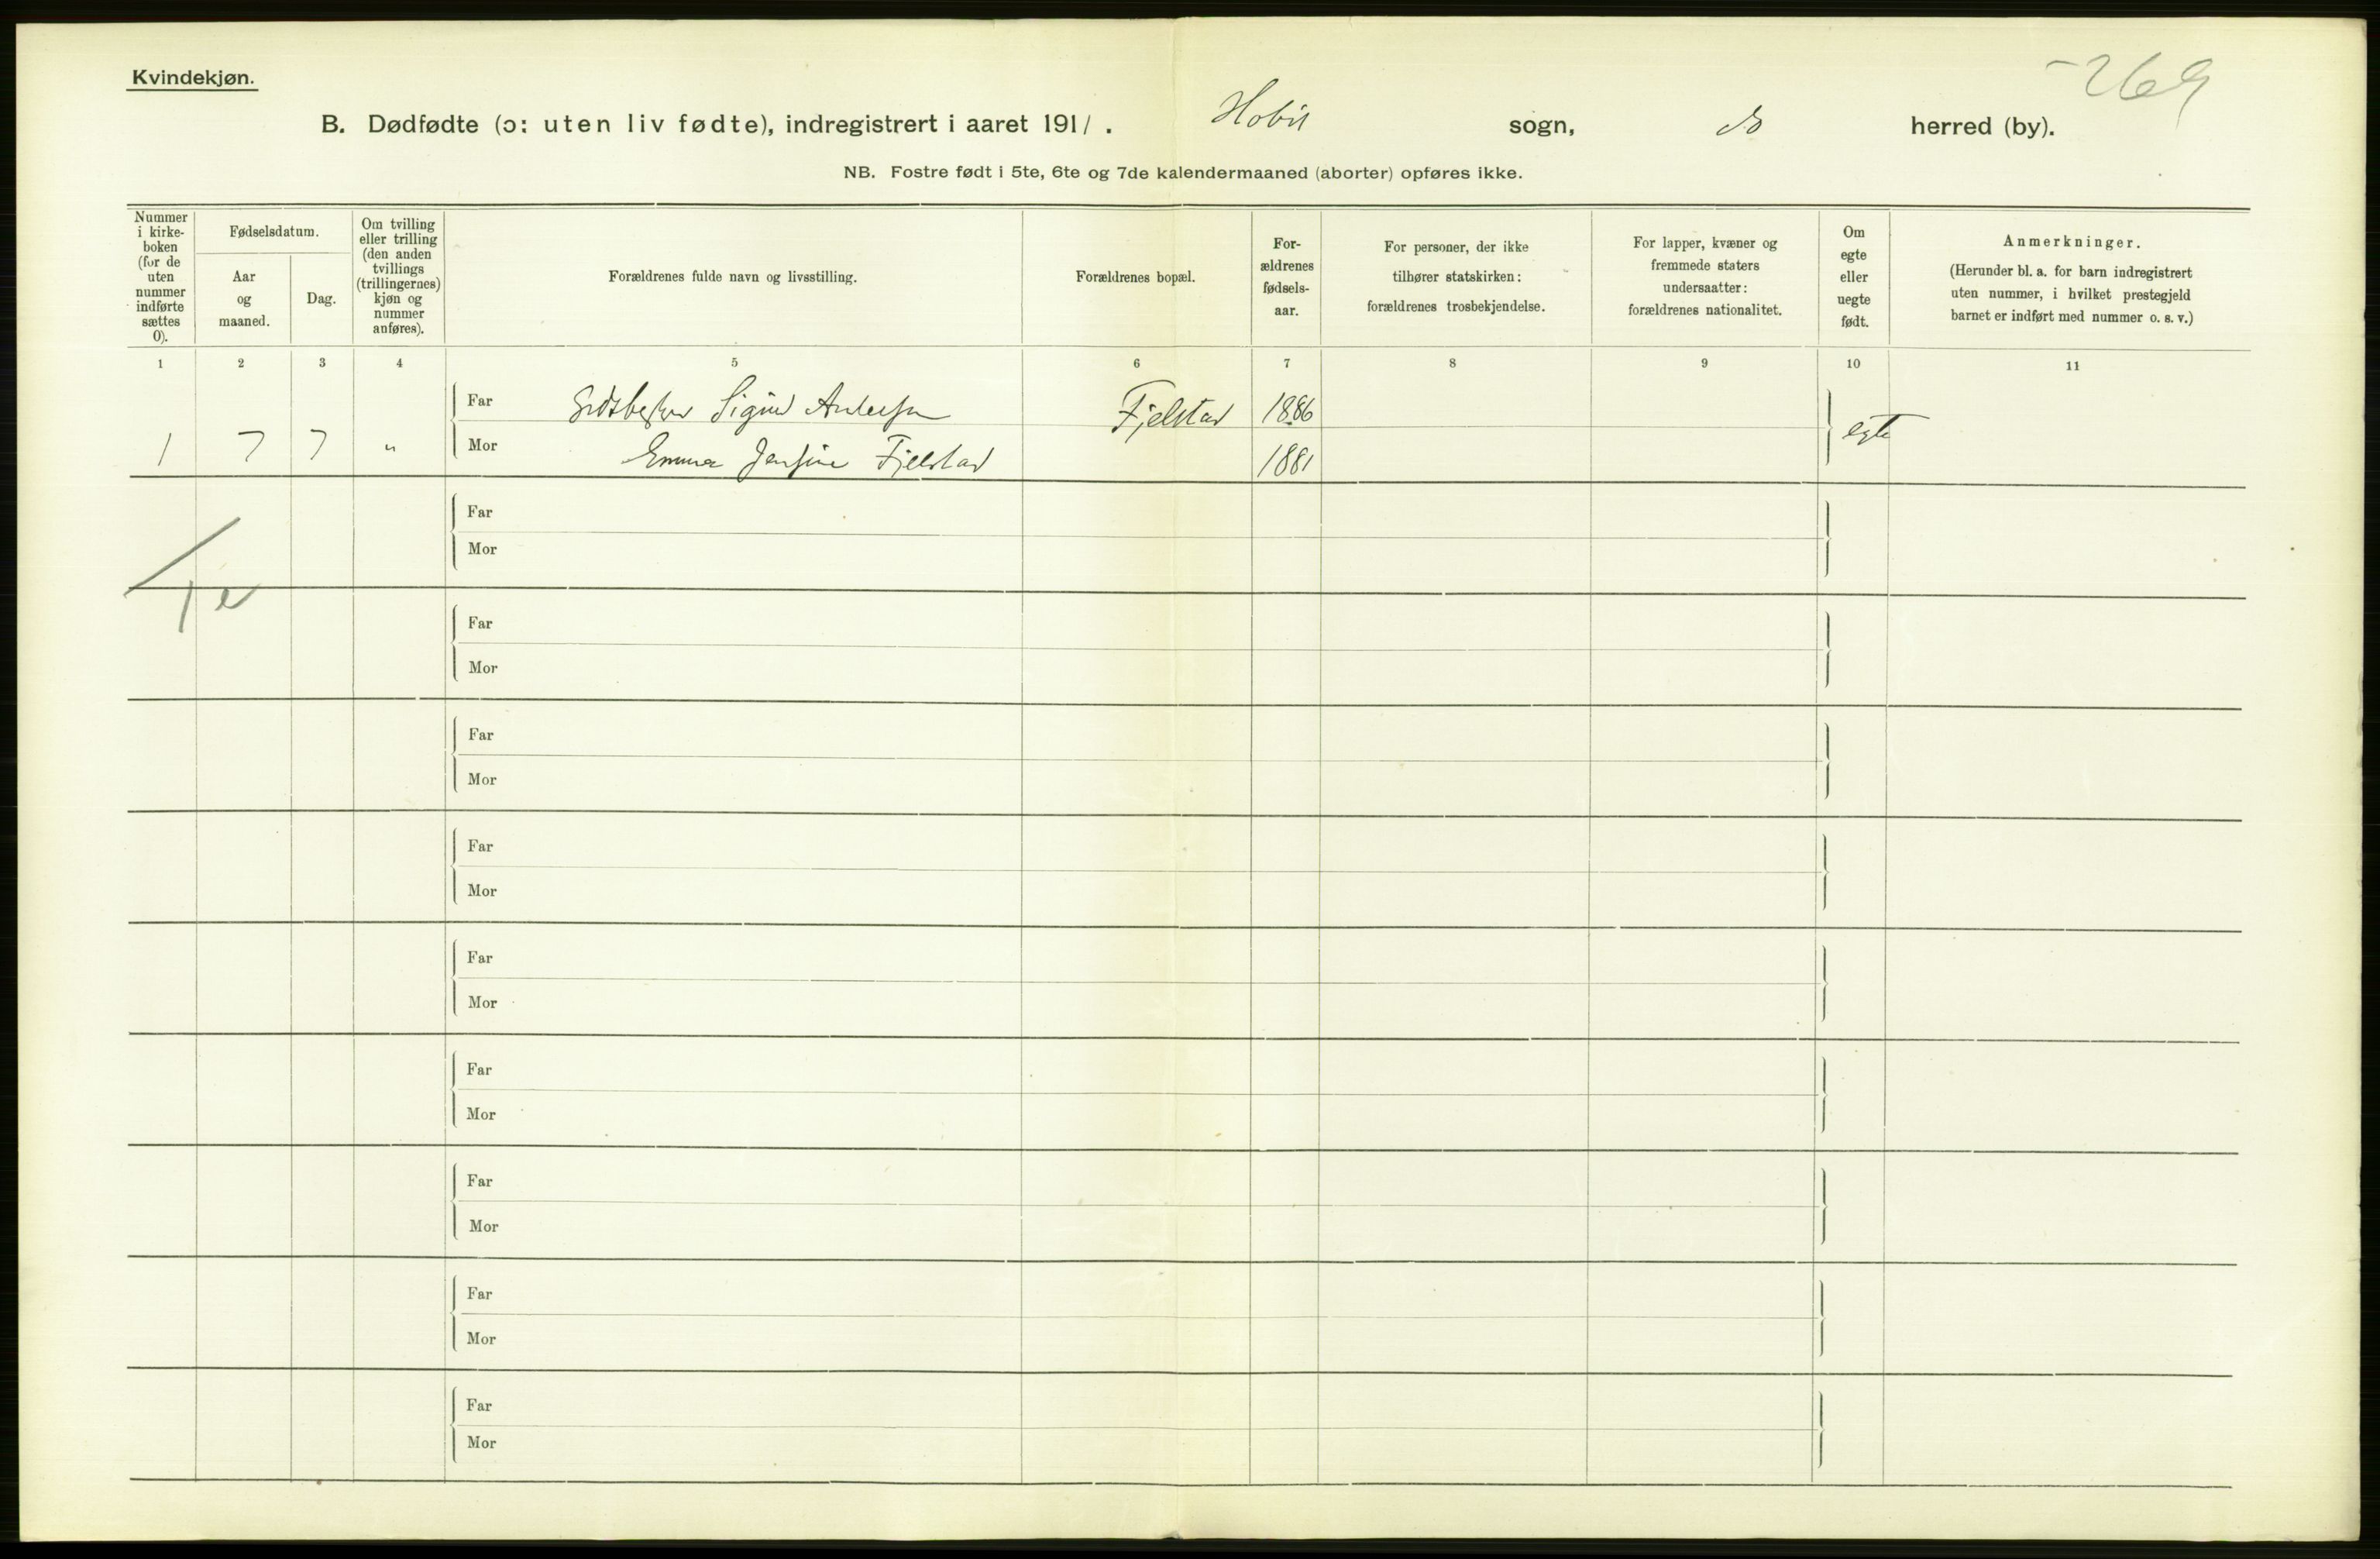 Kvindekjøn.
269
B. Dødfødte (ɔ: uten liv fødte), indregistrert i aaret 1911. Hobøl sogn, do herred (by).
NB. Fostre født i 5te, 6te og 7de kalendermaaned (aborter) opføres ikke.
Nummer i kirke-
boken
(for de
uten
nummer
indførte
sættes
0).
Fødselsdatum.
Aar
og
maaned.
Dag.
Om tvilling
eller trilling
(den anden
tvillings
(trillingernes)
kjøn og
nummer
anføres).
Forældrenes fulde navn og livsstilling.
Forældrenes bopæl.
For-
ældrenes
fødsels-
aar.
For personer, der ikke
tilhører statskirken:
forældrenes trosbekjendelse.
For lapper, kvæner og
fremmede staters
undersaatter:
forældrenes nationalitet.
Om
egte
eller
uegte
født.
Anmerkninger.
(Herunder bl. a. for barn indregistrert
uten nummer, i hvilket prestegjeld
barnet er indført med nummer o. s. v.)
1 2 3 4 5 6 7 8 9 10 11
Far Sigurd Andersen Fjelstad 1886
1 7 7 " Mor Emma Jensine Fjelstad 1881 egte
Far
Mor
1 e
Far
Mor
Far
Mor
Far
Mor
Far
Mor
Far
Mor
Far
Mor
Far
Mor
Far
Mor